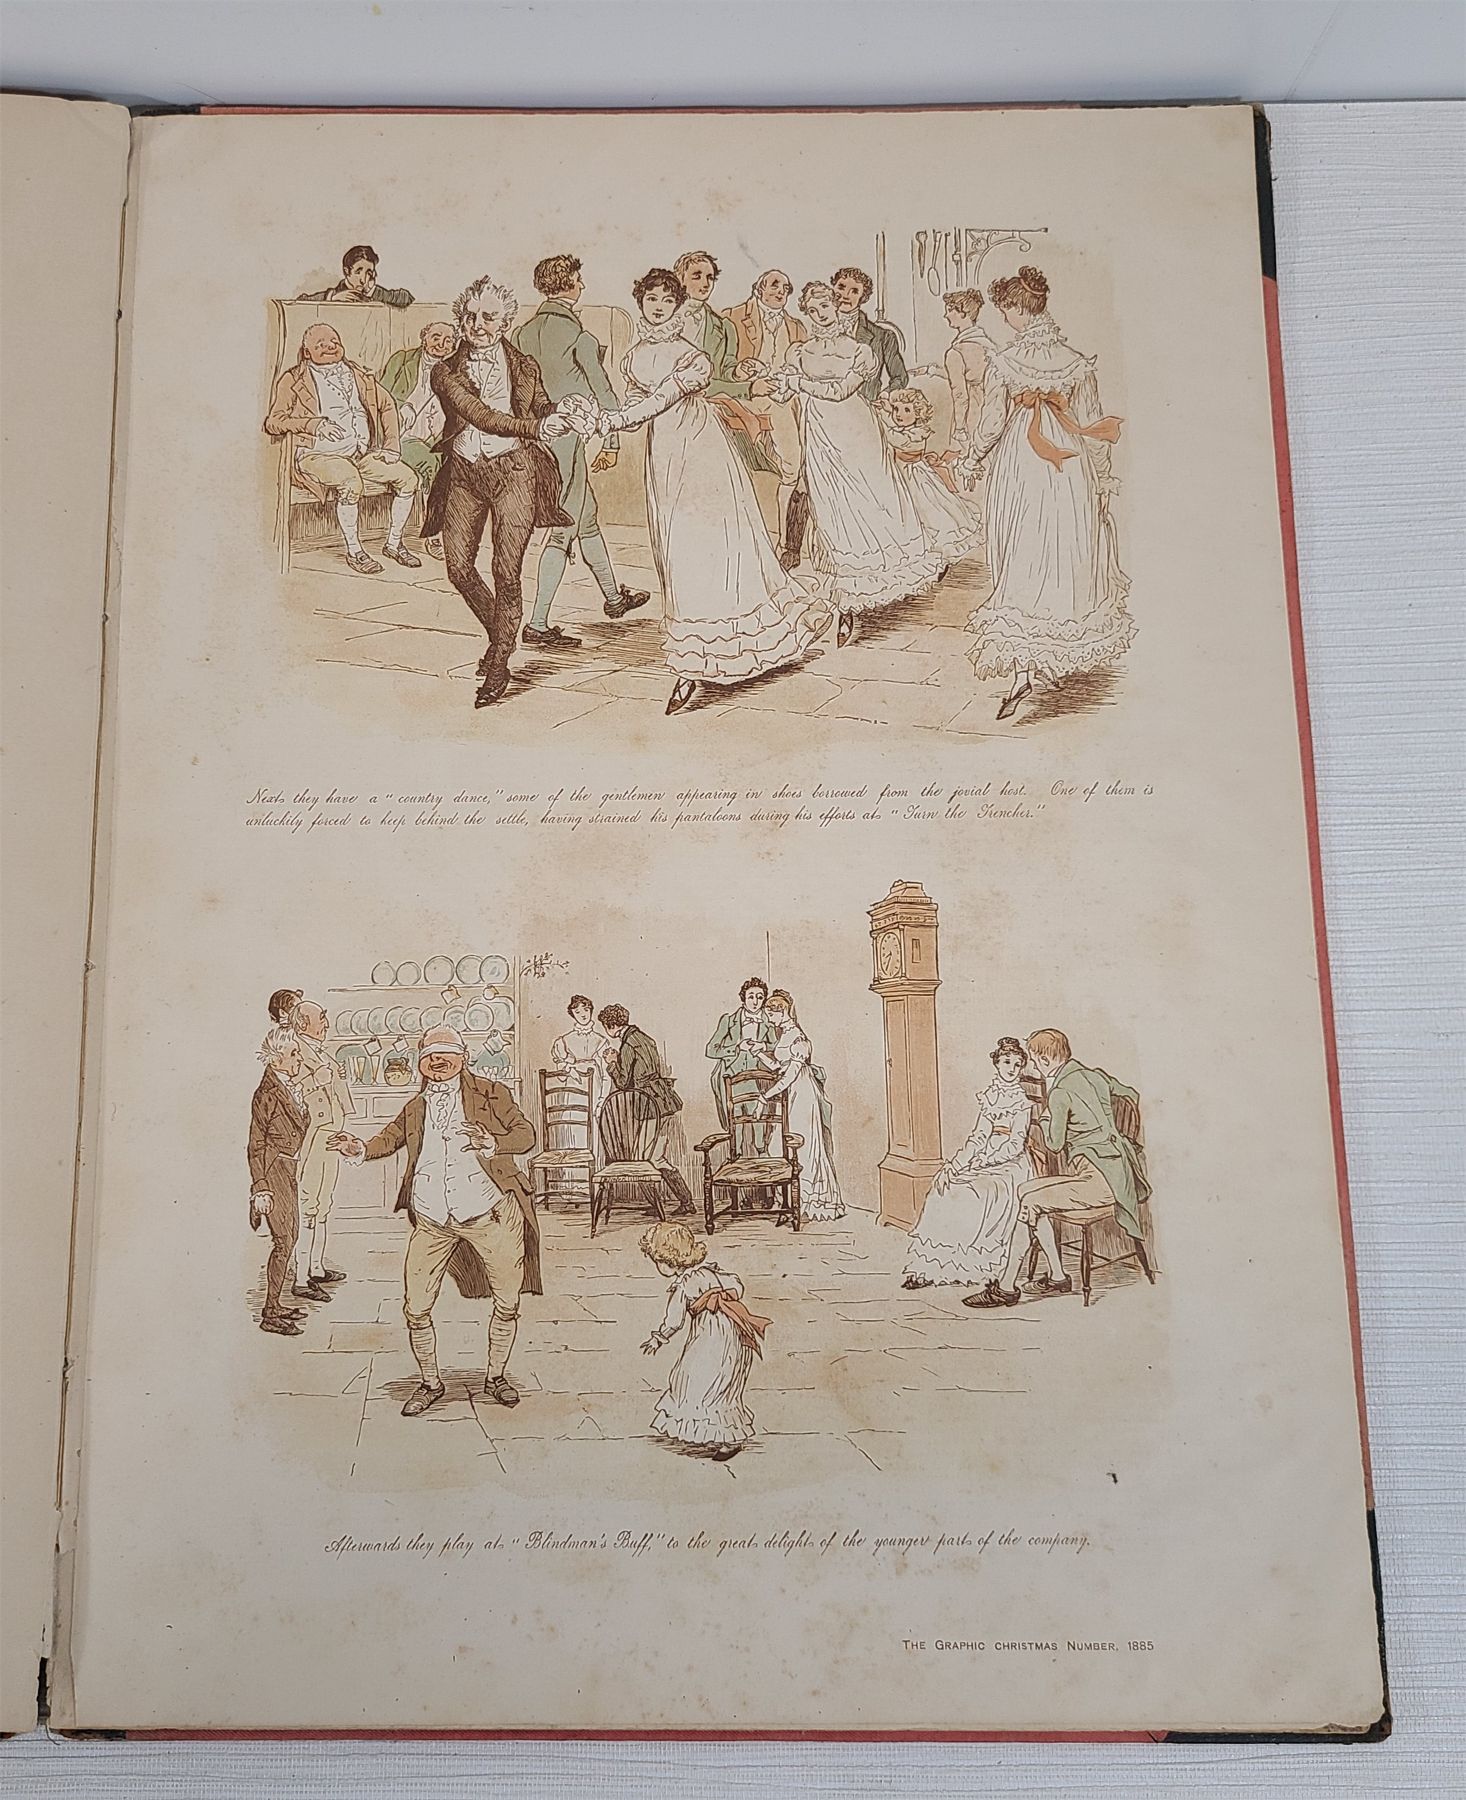 Next they have a "country dance," some of the gentlemen appearing in shoes borrowed from the jovial host. One of them is
unluckily forced to keep behind the settle, having strained his pantaloons during his efforts at "Turn the Trencher."
Afterwards they play at "Blindman's Buff," to the great delight of the younger part of the company.
THE GRAPHIC CHRISTMAS NUMBER, 1885